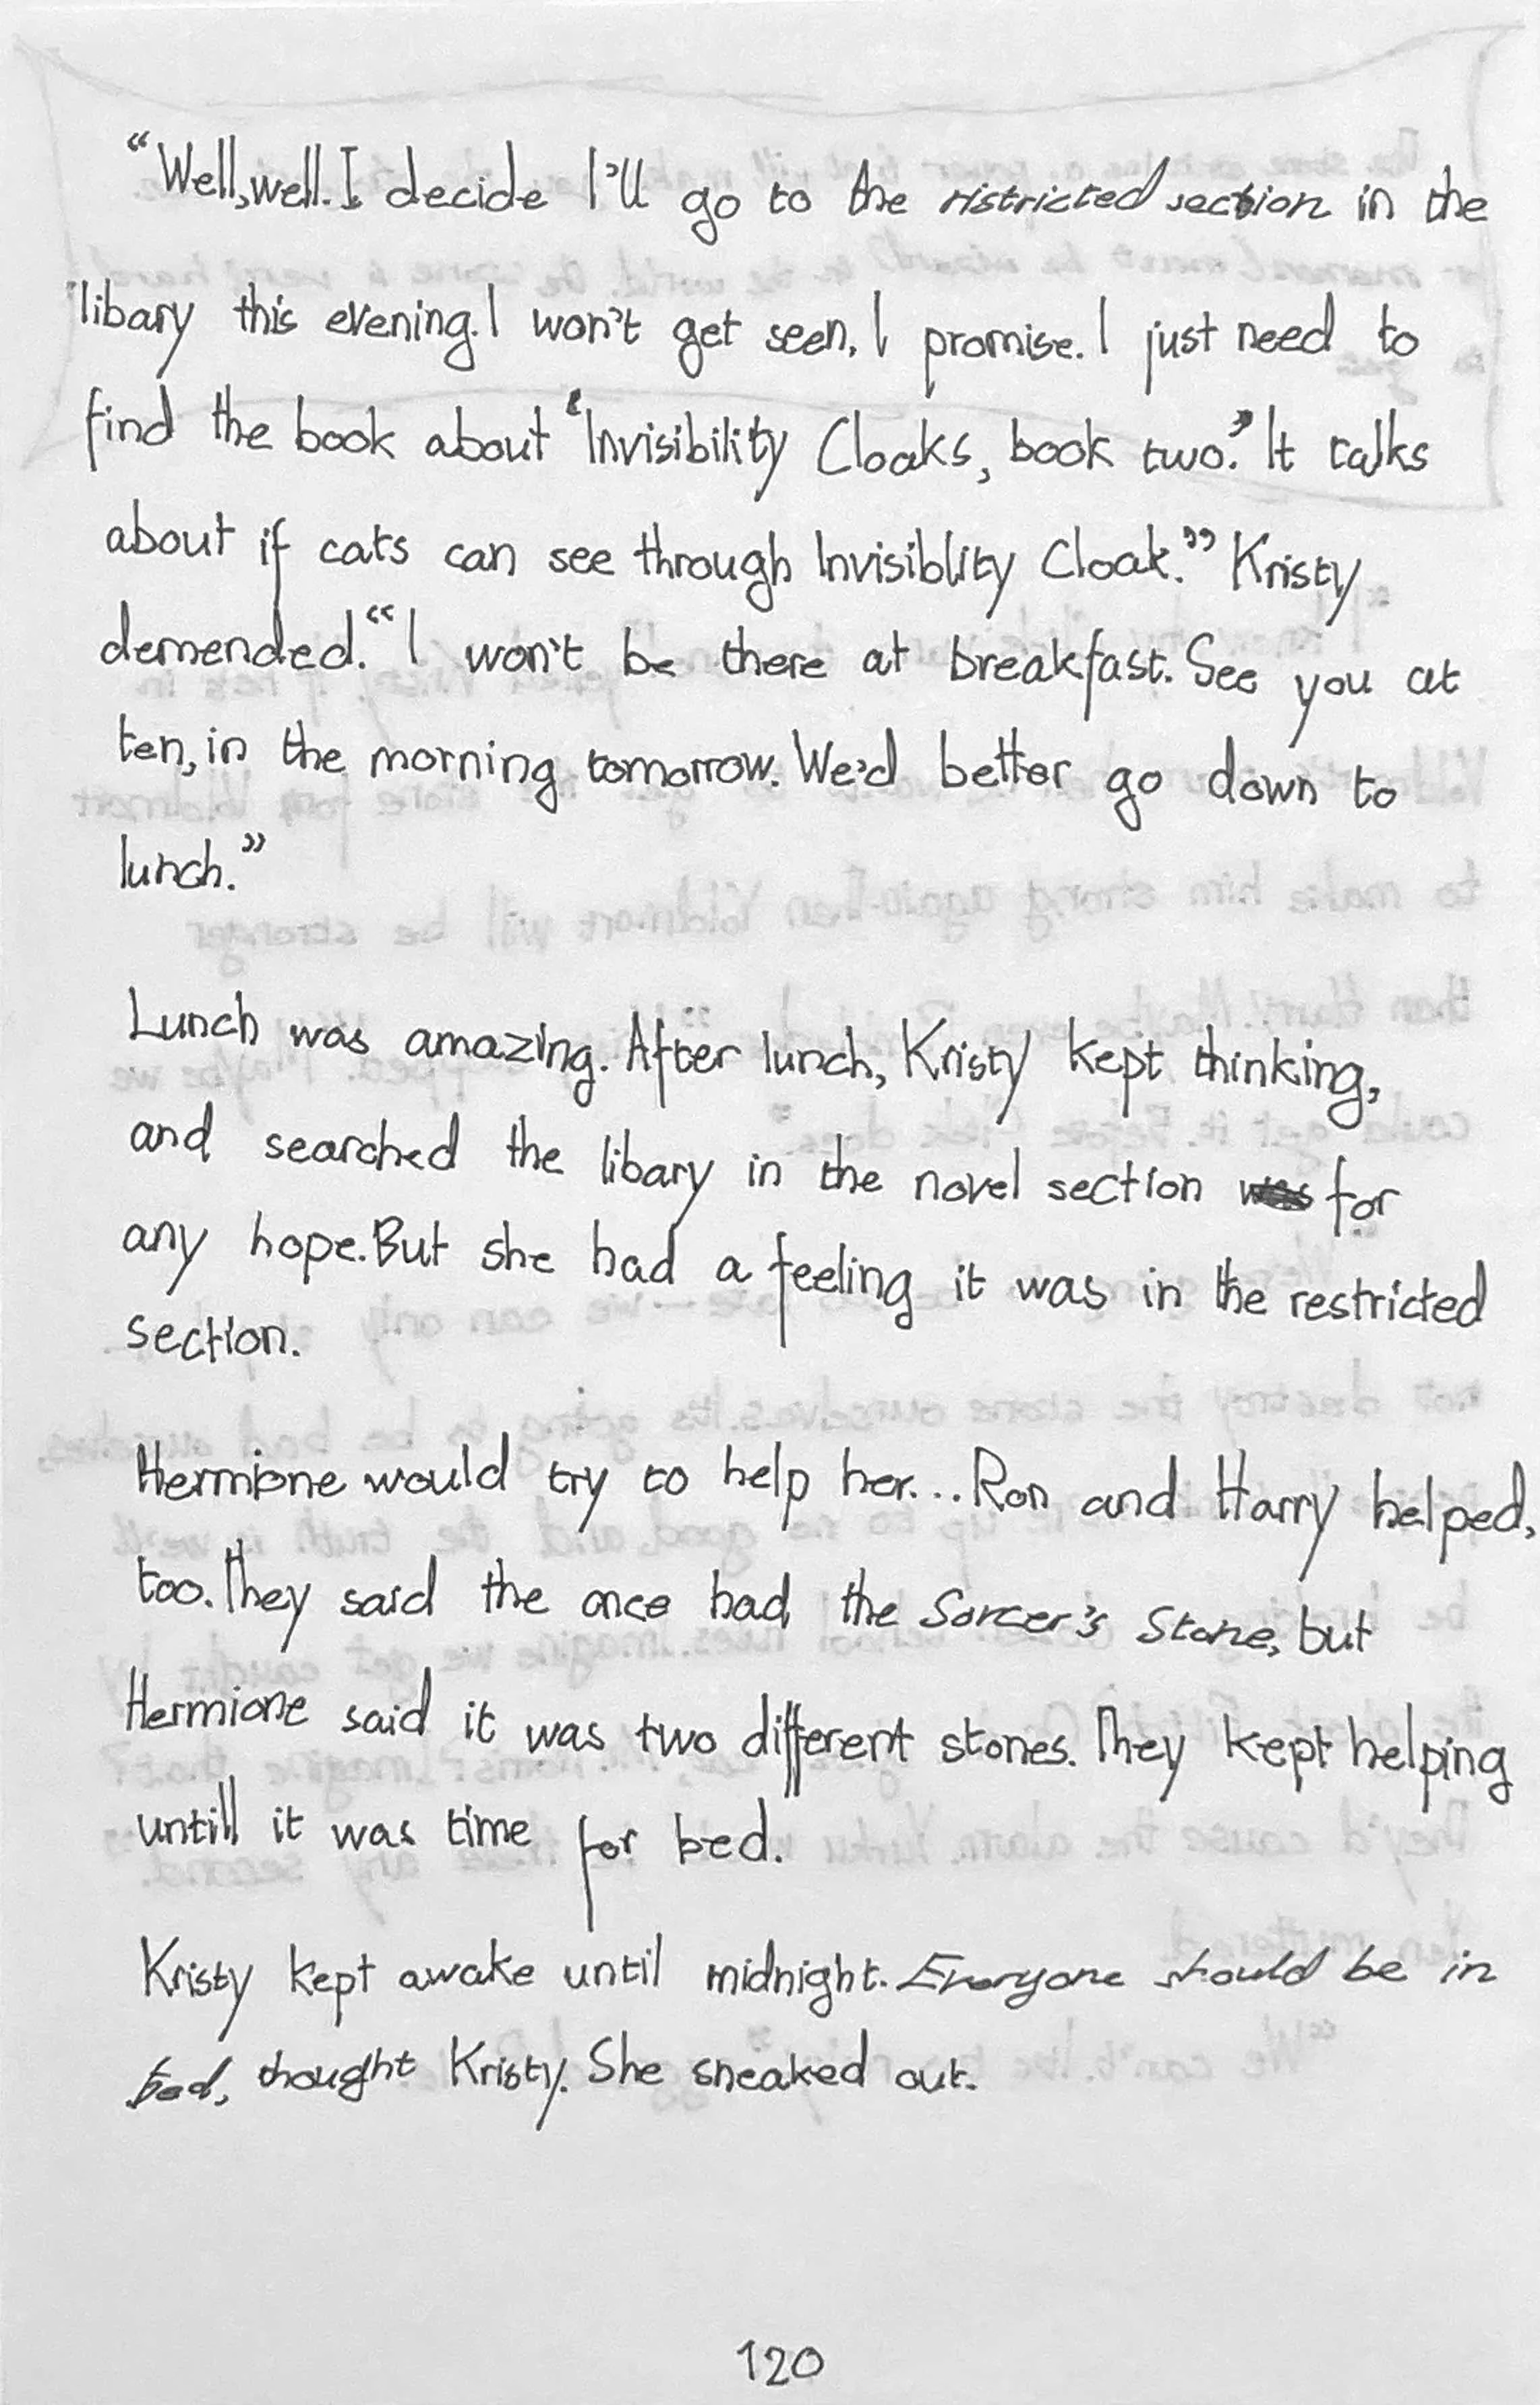 “Well, well. I decide I'll go to the ristricted section in the
libary this evening. I won't get seen, I promise. I just need to
find the book about ‘Invisibility Cloaks, book two.’ It talks
about if cats can see through Invisiblity Cloak.” Kristy
demended. “I won't be there at breakfast. See you at
ten, in the morning tomorrow. We'd better go down to
lunch.”
Lunch was amazing. After lunch, Kristy kept thinking,
and searched the libary in the novel section for
any hope. But she had a feeling it was in the restricted
section.
Hermione would try to help her... Ron and Harry helped,
too. They said the once had the Sorcer's Stone, but
Hermione said it was two different stones. They kept helping
untill it was time for bed.
Kristy kept awake until midnight. Everyone should be in
bed, thought Kristy. She sneaked out.
120